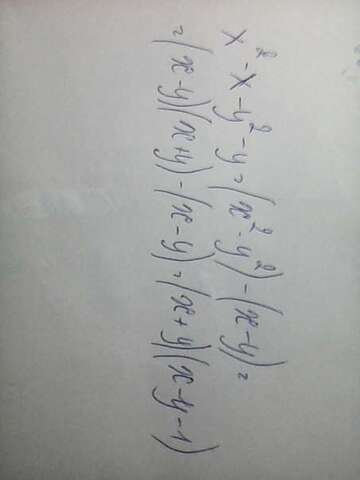 x² - x - y² - y = (x² - y²) - (x - y) =
= (x - y)(x + y) - (x - y) = (x + y)(x - y - 1)